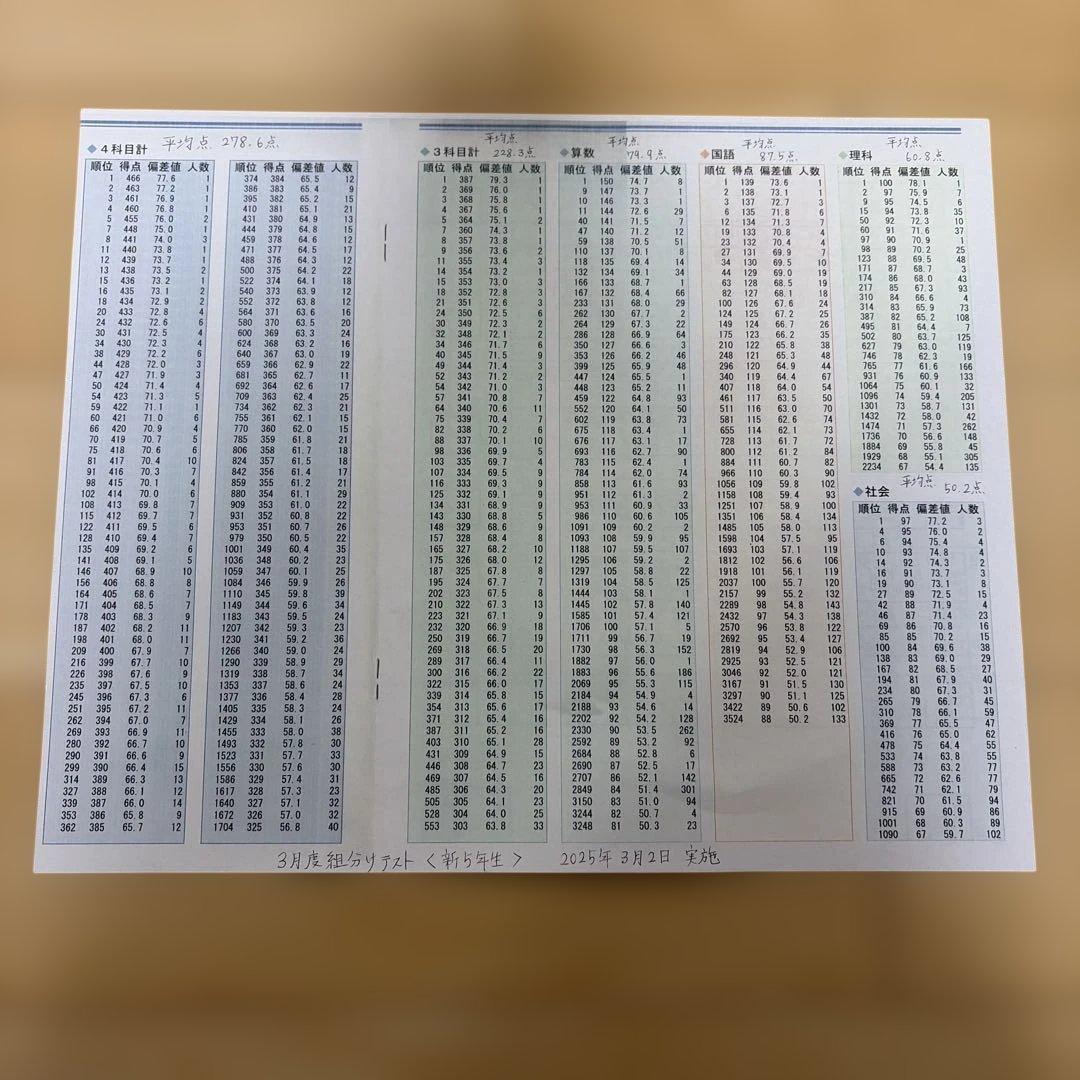 ◆4科目計 平均点 278.6点
順位 得点 偏差値 人数
1 466 77.6 1
2 463 77.2 1
3 461 76.9 1
4 460 76.8 1
5 455 76.0 2
7 448 75.0 1
8 441 74.0 3
11 440 73.8 1
12 439 73.7 1
13 438 73.5 2
15 436 73.2 1
16 435 73.1 2
18 434 72.9 2
20 433 72.8 4
24 432 72.6 6
30 431 72.5 4
34 430 72.3 4
38 429 72.2 6
44 428 72.0 3
47 427 71.9 3
50 424 71.4 4
54 423 71.3 5
59 422 71.1 1
60 421 71.0 6
66 420 70.9 4
70 419 70.7 5
75 418 70.6 6
81 417 70.4 10
91 416 70.3 7
98 415 70.1 4
102 414 70.0 6
108 413 69.8 7
115 412 69.7 7
122 411 69.5 6
128 410 69.4 7
135 409 69.2 6
141 408 69.1 5
146 407 68.9 10
156 406 68.8 8
164 405 68.6 7
171 404 68.5 7
178 403 68.3 9
187 402 68.2 11
198 401 68.0 11
209 400 67.9 7
216 399 67.7 10
226 398 67.6 9
235 397 67.5 10
245 396 67.3 6
251 395 67.2 11
262 394 67.0 7
269 393 66.9 11
280 392 66.7 10
290 391 66.6 9
299 390 66.4 15
314 389 66.3 13
327 388 66.1 12
339 387 66.0 14
353 386 65.8 9
362 385 65.7 12
順位 得点 偏差値 人数
374 384 65.5 12
386 383 65.4 9
395 382 65.2 15
410 381 65.1 21
431 380 64.9 13
444 379 64.8 15
459 378 64.6 12
471 377 64.5 17
488 376 64.3 12
500 375 64.2 22
522 374 64.1 18
540 373 63.9 12
552 372 63.8 12
564 371 63.6 16
580 370 63.5 20
600 369 63.3 24
624 368 63.2 16
640 367 63.0 19
659 366 62.9 22
681 365 62.7 11
692 364 62.6 17
709 363 62.4 25
734 362 62.3 21
755 361 62.1 15
770 360 62.0 15
785 359 61.8 21
806 358 61.7 18
824 357 61.5 18
842 356 61.4 17
859 355 61.2 21
880 354 61.1 29
909 353 61.0 22
931 352 60.8 22
953 351 60.7 26
979 350 60.5 22
1001 349 60.4 35
1036 348 60.2 23
1059 347 60.1 25
1084 346 59.9 26
1110 345 59.8 39
1149 344 59.6 34
1183 343 59.5 24
1207 342 59.3 23
1230 341 59.2 36
1266 340 59.0 24
1290 339 58.9 29
1319 338 58.7 34
1353 337 58.6 24
1377 336 58.4 28
1405 335 58.3 24
1429 334 58.1 26
1455 333 58.0 38
1493 332 57.8 30
1523 331 57.7 33
1556 330 57.6 30
1586 329 57.4 31
1617 328 57.3 23
1640 327 57.1 32
1672 326 57.0 32
1704 325 56.8 40
◆3科目計 平均点 228.3点
順位 得点 偏差値 人数
1 387 79.3 1
2 369 76.0 1
3 368 75.8 1
4 367 75.6 1
5 364 75.1 2
7 360 74.3 1
8 357 73.8 1
9 356 73.6 2
11 355 73.4 3
14 354 73.2 1
15 353 73.0 3
18 352 72.8 3
21 351 72.6 3
24 350 72.5 6
30 349 72.3 2
32 348 72.1 2
34 346 71.7 6
40 345 71.5 9
49 344 71.4 3
52 343 71.2 2
54 342 71.0 3
57 341 70.8 7
64 340 70.6 11
75 339 70.4 7
82 338 70.2 6
88 337 70.1 10
98 336 69.9 5
103 335 69.7 4
107 334 69.5 9
116 333 69.3 9
125 332 69.1 9
134 331 68.9 9
143 330 68.8 5
148 329 68.6 9
157 328 68.4 8
165 327 68.2 10
175 326 68.0 12
187 325 67.8 8
195 324 67.7 7
202 323 67.5 8
210 322 67.3 13
223 321 67.1 9
232 320 66.9 18
250 319 66.7 19
269 318 66.5 20
289 317 66.4 11
300 316 66.2 22
322 315 66.0 17
339 314 65.8 15
354 313 65.6 17
371 312 65.4 16
387 311 65.2 16
403 310 65.1 28
431 309 64.9 15
446 308 64.7 23
469 307 64.5 16
485 306 64.3 20
505 305 64.1 23
528 304 64.0 25
553 303 63.8 33
◆算数 平均点 79.9点
順位 得点 偏差値 人数
1 150 74.7 8
9 147 73.7 1
10 146 73.3 1
11 144 72.6 29
40 141 71.5 7
47 140 71.2 12
59 138 70.5 51
110 137 70.1 8
118 135 69.4 14
132 134 69.1 34
166 133 68.7 1
167 132 68.4 66
233 131 68.0 29
262 130 67.7 2
264 129 67.3 22
286 128 66.9 64
350 127 66.6 3
353 126 66.2 46
399 125 65.9 48
447 124 65.5 1
448 123 65.2 11
459 122 64.8 93
552 120 64.1 50
602 119 63.8 73
675 118 63.4 1
676 117 63.1 17
693 116 62.7 90
783 115 62.4 1
784 114 62.0 74
858 113 61.6 93
951 112 61.3 2
953 111 60.9 33
986 110 60.6 105
1091 109 60.2 2
1093 108 59.9 95
1188 107 59.5 107
1295 106 59.2 2
1297 105 58.8 22
1319 104 58.5 125
1444 103 58.1 1
1445 102 57.8 140
1585 101 57.4 121
1706 100 57.1 5
1711 99 56.7 19
1730 98 56.3 152
1882 97 56.0 1
1883 96 55.6 186
2069 95 55.3 115
2184 94 54.9 4
2188 93 54.6 14
2202 92 54.2 128
2330 90 53.5 262
2592 89 53.2 92
2684 88 52.8 6
2690 87 52.5 17
2707 86 52.1 142
2849 84 51.4 301
3150 83 51.0 94
3244 82 50.7 4
3248 81 50.3 23
◆国語 平均点 87.5点
順位 得点 偏差値 人数
1 139 73.6 1
2 138 73.1 1
3 137 72.7 3
6 135 71.8 6
12 134 71.3 7
19 133 70.8 4
23 132 70.4 4
27 131 69.9 7
34 130 69.5 10
44 129 69.0 19
63 128 68.5 19
82 127 68.1 18
100 125 67.2 24
124 125 67.2 25
149 124 66.7 26
175 123 66.2 35
210 122 65.8 38
248 121 65.3 48
296 120 64.9 44
340 119 64.4 67
407 118 64.0 54
461 117 63.5 50
511 116 63.0 70
581 115 62.6 74
655 114 62.1 73
728 113 61.7 72
800 112 61.2 84
884 111 60.7 82
966 110 60.3 90
1056 109 59.8 102
1158 108 59.4 93
1251 107 58.9 100
1351 106 58.4 134
1485 105 58.0 113
1598 104 57.5 95
1693 103 57.1 119
1812 102 56.6 106
1918 101 56.1 119
2037 100 55.7 120
2157 99 55.2 132
2289 98 54.8 143
2432 97 54.3 138
2570 96 53.8 122
2692 95 53.4 127
2819 94 52.9 106
2925 93 52.5 121
3046 92 52.0 121
3167 91 51.5 130
3297 90 51.1 125
3422 89 50.6 102
3524 88 50.2 133
◆理科 平均点 60.8点
順位 得点 偏差値 人数
1 100 78.1 1
2 97 75.9 7
9 95 74.5 6
15 94 73.8 35
50 92 72.3 10
60 91 71.6 37
97 90 70.9 1
98 89 70.2 25
123 88 69.5 48
171 87 68.7 3
174 86 68.0 43
217 85 67.3 93
310 84 66.6 4
314 83 65.9 73
387 82 65.2 108
495 81 64.4 7
502 80 63.7 125
627 79 63.0 119
746 78 62.3 19
765 77 61.6 166
931 76 60.9 133
1064 75 60.1 32
1096 74 59.4 205
1301 73 58.7 131
1432 72 58.0 42
1474 71 57.3 262
1736 70 56.6 148
1884 69 55.8 45
1929 68 55.1 305
2234 67 54.4 135
◆社会 平均点 50.2点
順位 得点 偏差値 人数
1 97 77.2 3
4 95 76.0 2
6 94 75.4 4
10 93 74.8 4
14 92 74.3 2
16 91 73.7 3
19 90 73.1 8
27 89 72.5 15
42 88 71.9 4
46 87 71.4 23
69 86 70.8 16
85 85 70.2 15
100 84 69.6 38
138 83 69.0 29
167 82 68.5 27
194 81 67.9 40
234 80 67.3 31
265 79 66.7 45
310 78 66.1 59
369 77 65.5 47
416 76 65.0 62
478 75 64.4 55
533 74 63.8 55
588 73 63.2 77
665 72 62.6 77
742 71 62.1 79
821 70 61.5 94
915 69 60.9 86
1001 68 60.3 89
1090 67 59.7 102
3月度組分けテスト〈新5年生〉 2025年3月2日 実施